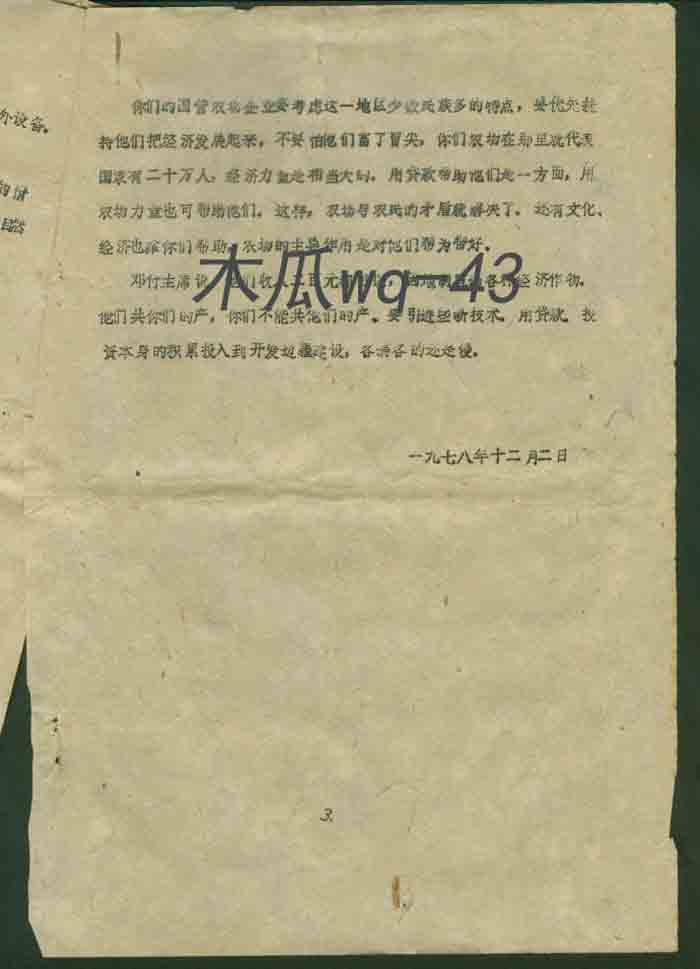 外设备。
你们的国营农场企业要考虑这一地区少数民族多的特点，要优先扶
持他们把经济发展起来，不要怕他们富了冒尖，你们农场在那里就代表
国家有二十万人，经济力量是相当大的，用贷款帮助他们是一方面，用
农场力量也可帮助他们，这样，农场与农民的矛盾就解决了。还有文化、
经济也靠你们帮助，农场的主要作用是对他们帮为帮好。
邓付主席说，他们收入三百元 各种经济作物，
他们共你们的产，你们不能共他们的产。要引进 技术，用贷款、投
资本身的积累投入到开发边疆建设，各搞各的还是慢。
木瓜wq-43
一九七八年十二月二日
3.